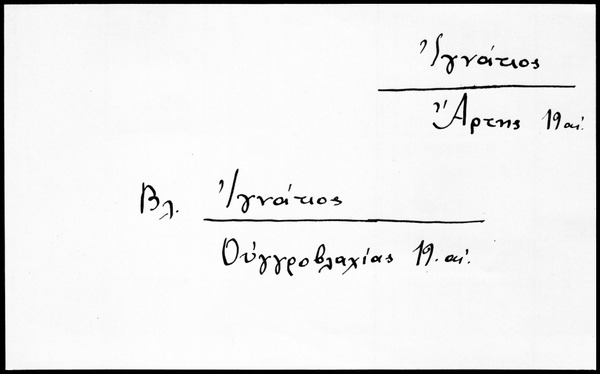 Ἰγνάτιος
Ἄρτης 19 αἰ.
Βλ. Ἰγνάτιος
Οὑγγροβλαχίας 19. αἰ.